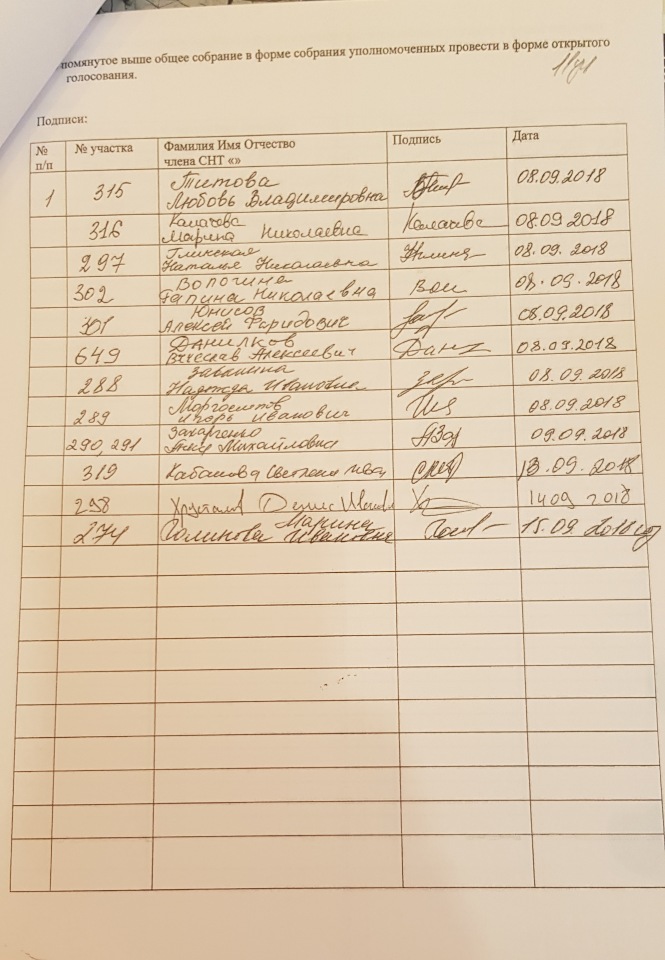 помянутое выше общее собрание в форме собрания уполномоченных провести в форме открытого
голосования.
Подписи:
№ п/п № участка Фамилия Имя Отчество члена СНТ «» Подпись Дата
1 315 Титова
Любовь Владимировна 08.09.2018
316 Калачева
Марина Николаевна Калачева 08.09.2018
297
Наталье Николаевна 08.09.2018
302 Вологина
Галина Николаевна Вол 08.09.2018
301 Юнисов
Алексей Фаридович 08.09.2018
649 Данилков
Вячеслав Алексеевич Дан 08.09.2018
288
Надежда Ивановна 08.09.2018
289
Игорь Иванович 08.09.2018
290, 291 Захарченко
Михайловна 09.09.2018
319 Светлана 13.09.2018
298 Денис 14 09 2018
274 Марина
Голикова Ивановна 15.09.2018